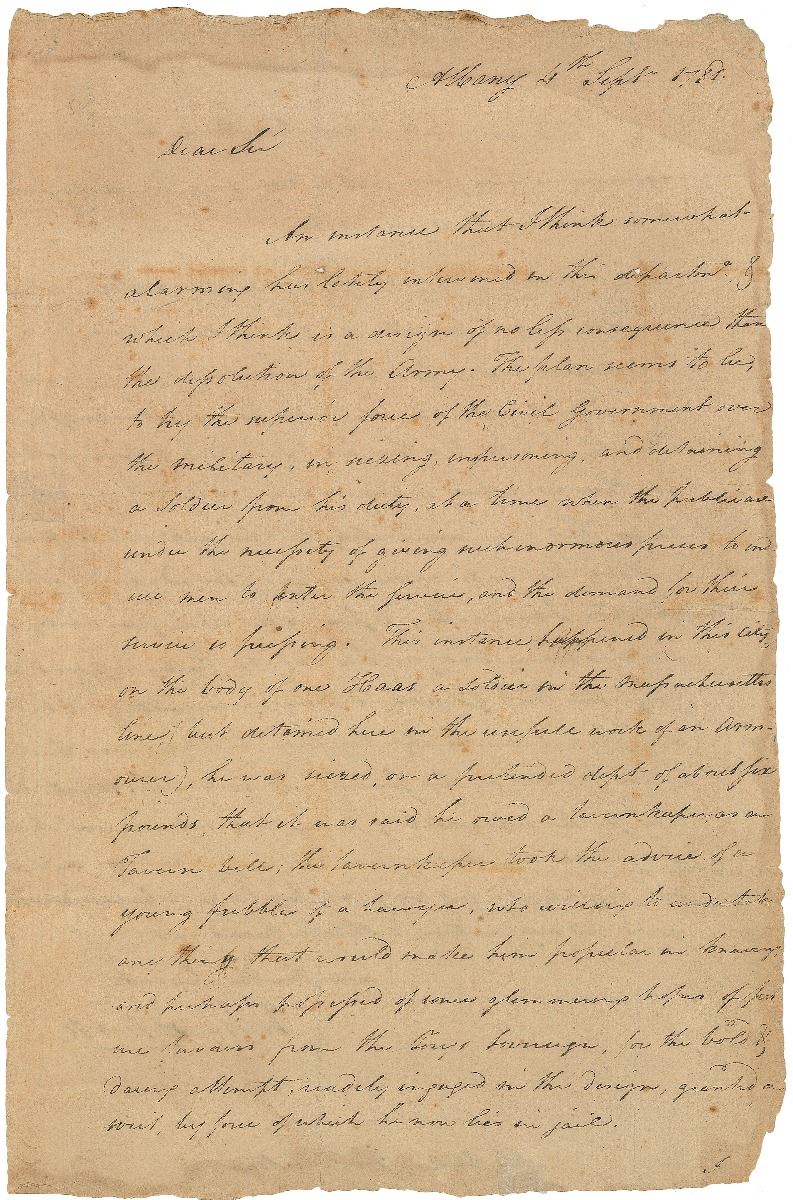 Albany 4th Sept. 1781.
Dear Sir
An instance that I think somewhat
alarming has lately intervened in this departmt. &
which I think is a design of no less consequence than
the dissolution of the Army. The plan seems to be,
to try the superior force of the Civil Government over
the military, in siezing, imprisoning, and detaining
a Soldier from his duty, at a time when the public are
under the necessity of giving such enormous prices to ind
uce men to enter the service, and the demand for their
service is pressing. This instance happened in this City,
on the body of one Haas a Soldier in the Massachusetts
line, (but detained here in the usefull work of an Arm-
ourer), he was siezed, on a pretended dept of about six
pounds, that it was said he owed a tavernkeeper, as a
Tavern bill; the tavernkeeper took the advice of a
young fribble of a lawyer, who willing to undertake
any thing that would make him popular in
and perhaps possessed of some glimmering hopes of
favours from the Sovereign, for the bold &
daring attempt, readily engaged in the design, granted a
writ, by force of which he now lies in jail.